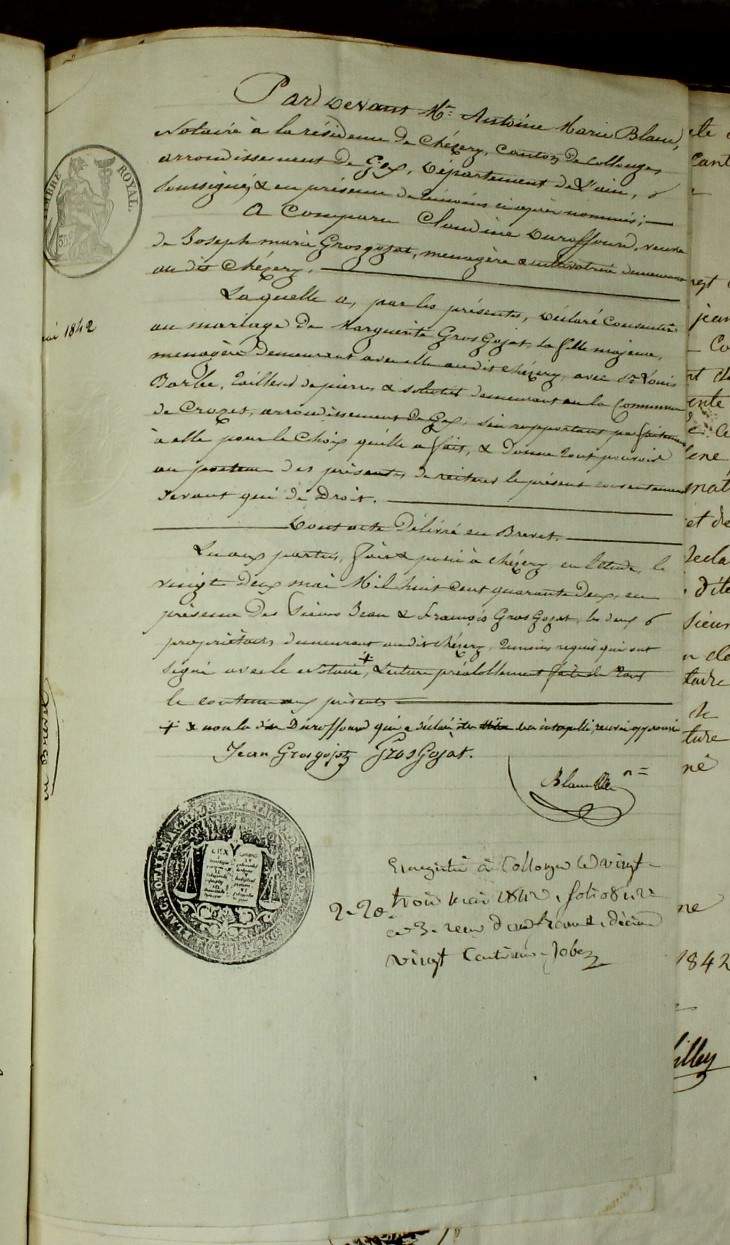 Pardevant Me. Antoine Marie Blanc,
Notaire à la résidence de Chézery, canton de Collonges
arrondissement de Gex, Département de l'ain,
soussigné, & en présence de témoins ci après nommés;
A Comparu Claudine Duraffourd, veuve
de Joseph marie Grosgojat, menagère & cultivatrice demeurant
au dit Chézery.
Laquelle a, par les présentes, Déclaré Consentir
au mariage de Marguerite GrosGojat, sa fille majeure,
menagère demeurant avec elle audit Chézery, avec Sr. Louis
Barbe, tailleur de pierres, & demeurant en la Commune
de Crozet, arrondissement de Gex, s'en rapportant parfaitement
à elle pour le Choix qu'elle a fait, & donne tout pouvoir
au porteur des présentes de réitérer le présent consentement
devant qui de Droit.
Dont acte Délivré en Brevet.
Lu aux parties, fait & passé à Chézery en l'étude, le
vingt deux mai Mil huit Cent quarante deux, en
présence Des Sieurs Jean & François GrosGojat, les deux
propriétaires demeurant audit Chézery, témoins requis qui ont
signé avec le Notaire, + Lecture préalablement faite de tout
le contenu aux présentes
+ & non la dite Duraffourd qui a déclaré de ce interpellé renvoi approuvé
Jean Grosgojat GrosGojat.
Blanc nre
Enregistré à Collonges le vingt
trois mai 1842, folio
2-20
ce 3. reçu deux francs, décime
vingt Centimes. Jobez
TIMBRE ROYAL.
mai 1842
en Brevet
1842